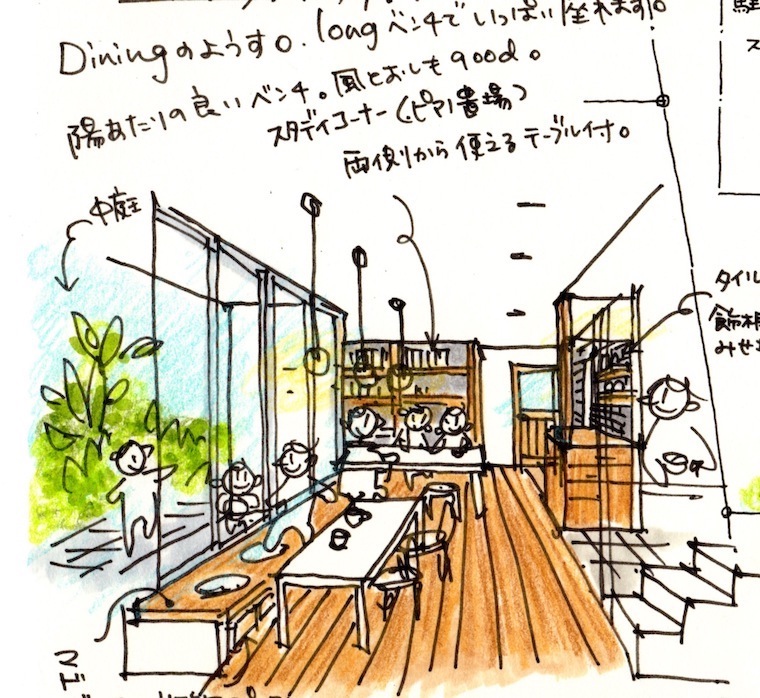 Diningのようす。longベンチでいっぱい座れます。
陽あたりの良いベンチ。風とおしもgood。
スタディコーナー(ピアノ置場)
両側から使えるテーブル付。
中庭
タイル
飾棚
みせ
マド